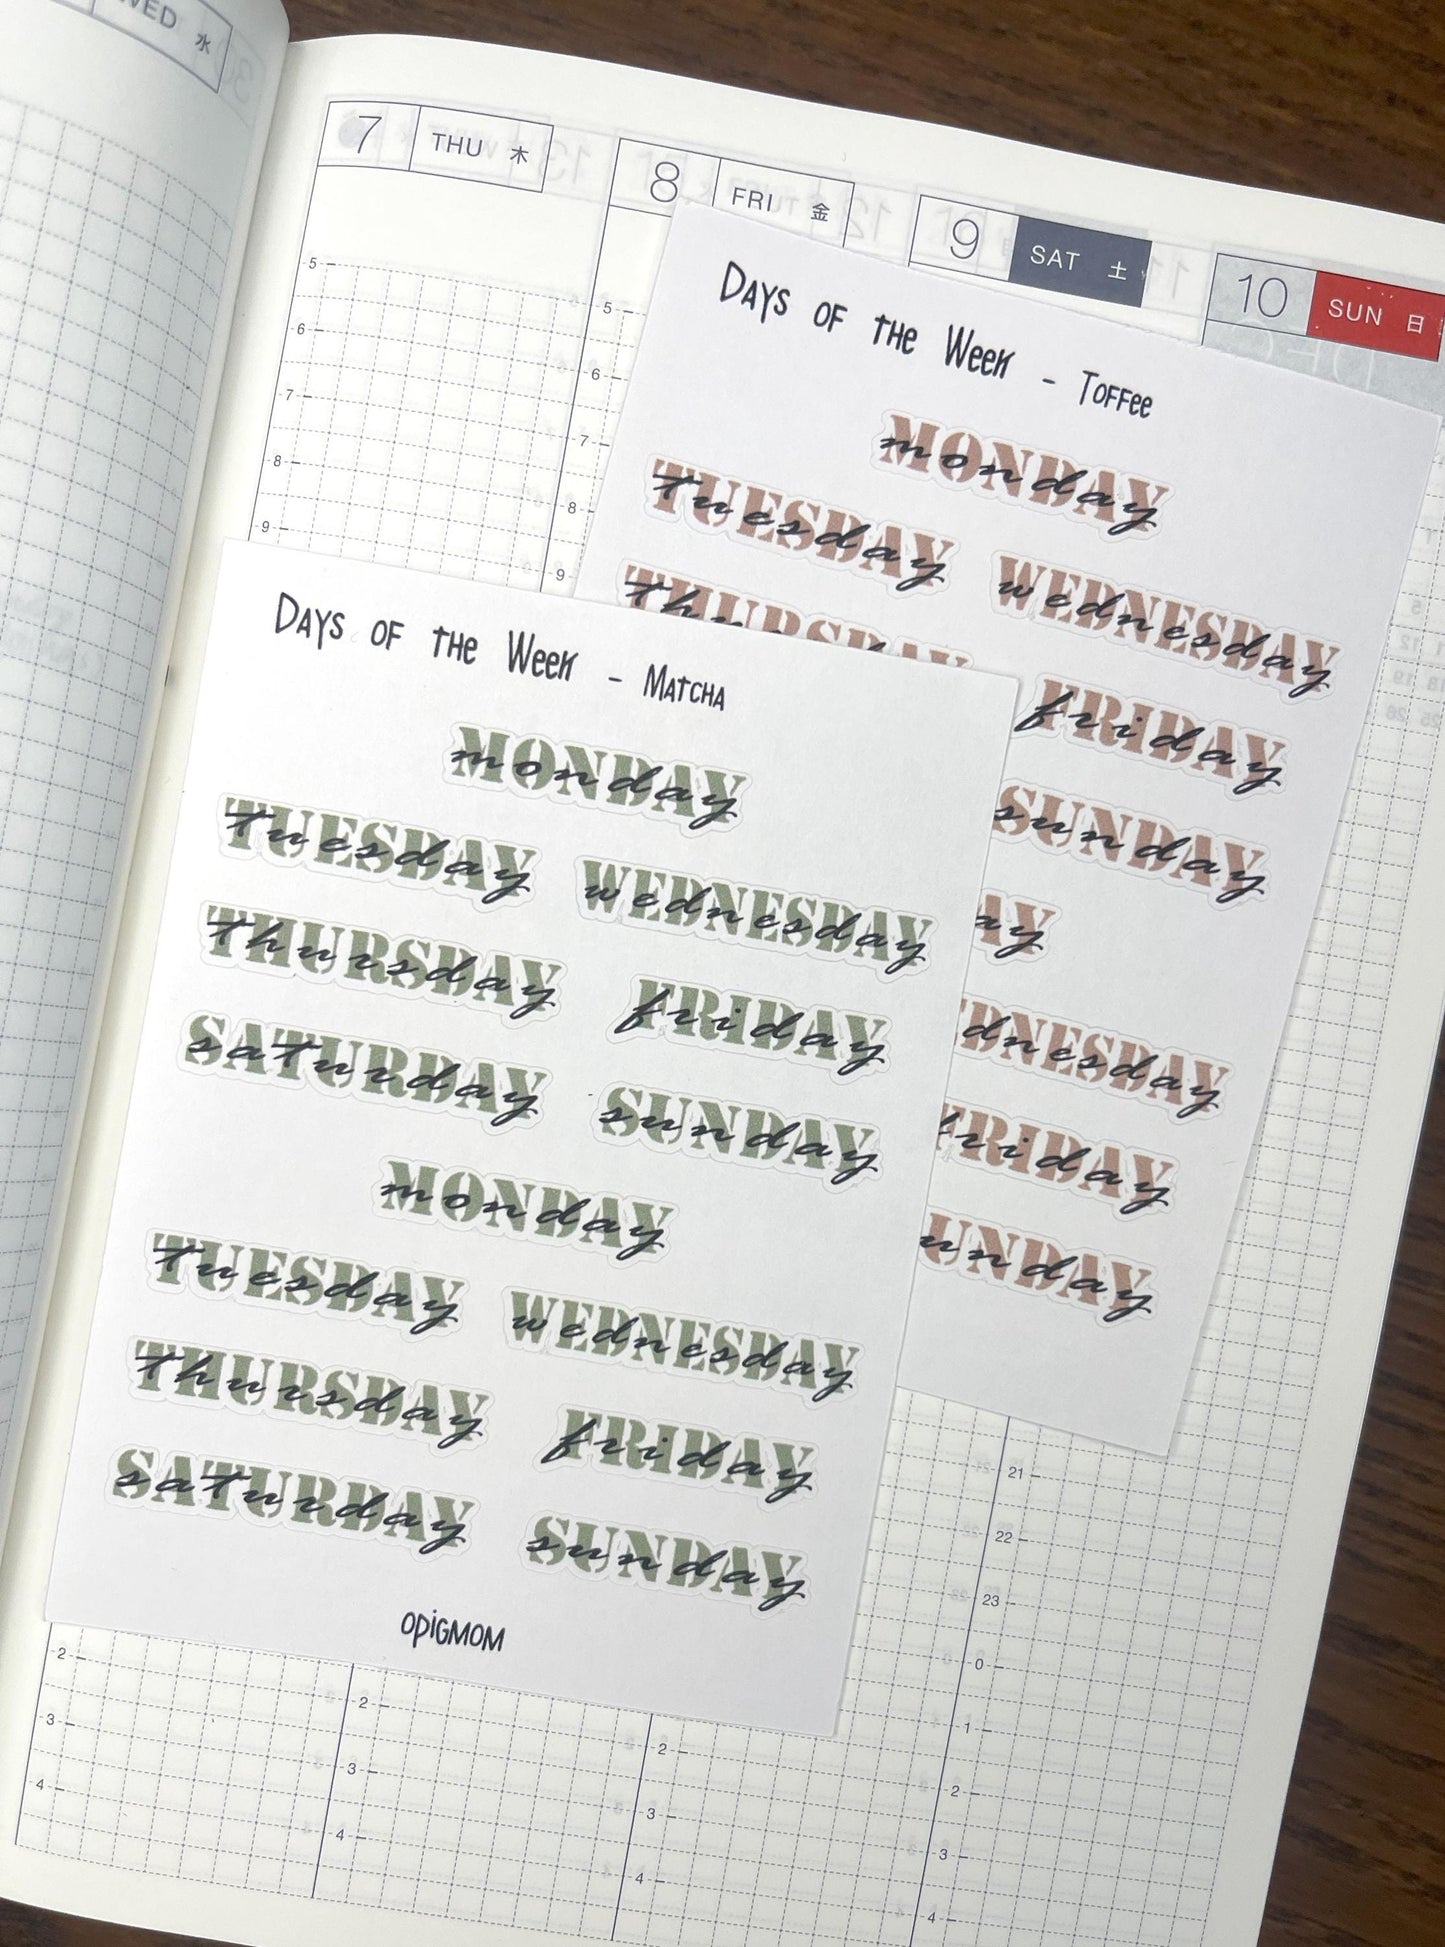 WED 水
7 THU 木
8 FRI 金
9 SAT 土
10 SUN 日
5
6
7
8
9
5
6
7
8
9
Days of the Week - Toffee
MONDAY monday
TUESDAY tuesday
WEDNESDAY wednesday
THURSDAY
FRIDAY friday
SUNDAY sunday
AY ay
DNESDAY dnesday
FRIDAY friday
UNDAY unday
Days of the Week - Matcha
MONDAY monday
TUESDAY tuesday
WEDNESDAY wednesday
THURSDAY thursday
FRIDAY friday
SATURDAY saturday
SUNDAY sunday
MONDAY monday
TUESDAY tuesday
WEDNESDAY wednesday
THURSDAY thursday
FRIDAY friday
SATURDAY saturday
SUNDAY sunday
OPIGMOM
2
3
4
2
3
4
2
3
4
21
22
23
0
1
2
3
4